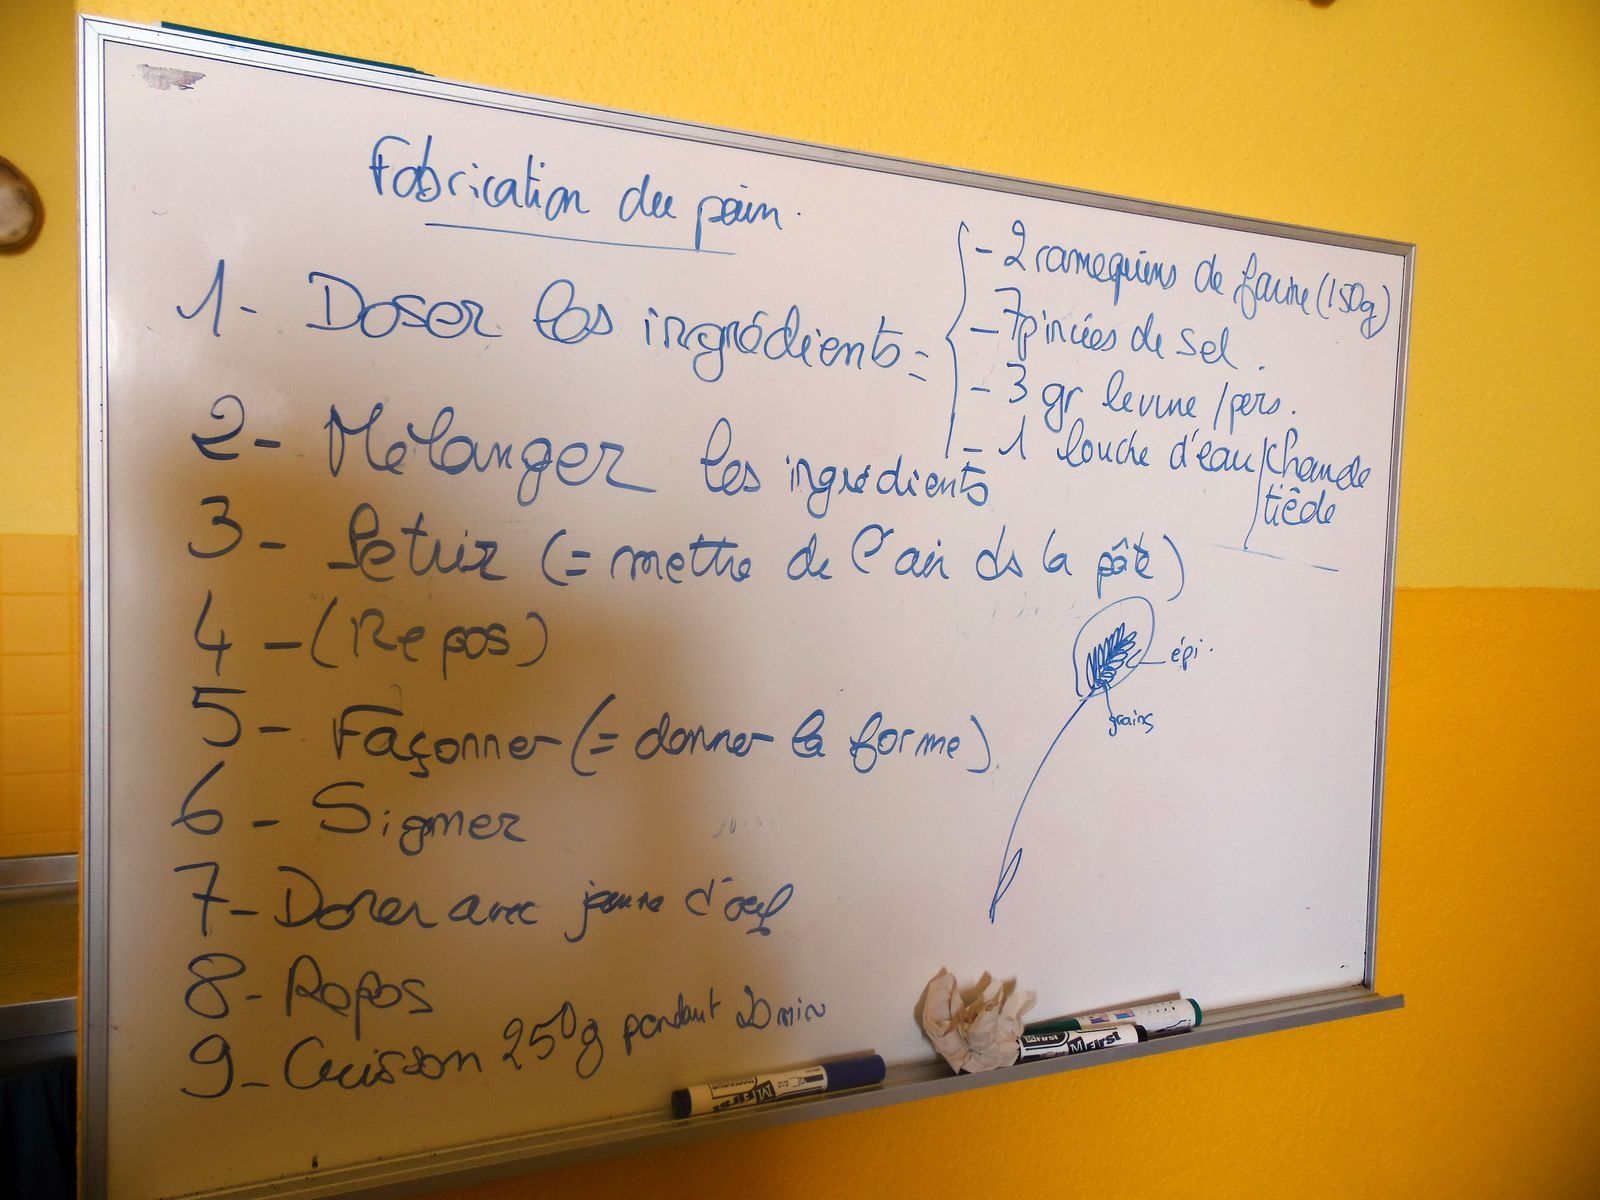 Fabrication du pain.
1- Doser les ingrédients =
- 2 ramequins de farine (150g)
- 7 pincées de sel.
- 3 gr levure /pers.
- 1 louche d'eau chaude
tiède
2- Mélanger les ingrédients
3- Petrir (= mettre de l'air ds la pâte)
4- (Repos)
5- Façonner (= donner la forme)
6- Signer
7- Dorer avec jaune d'oeuf
8- Repos
9- Cuisson 250g pendant 20 min
épi.
grains
M First